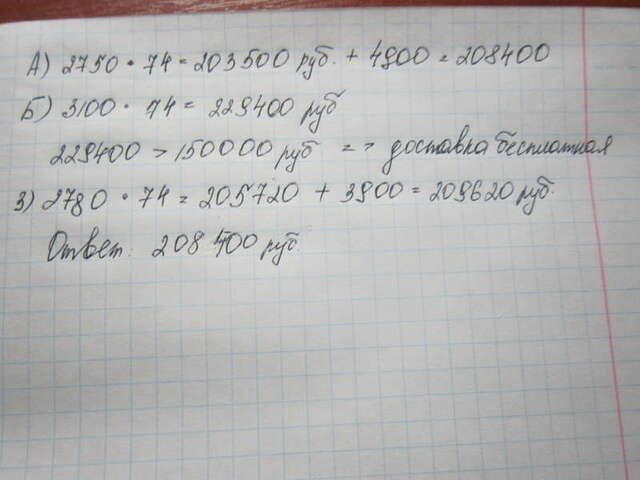 А) 2750 • 74 = 203500 руб. + 4900 = 208400
Б) 3100 • 74 = 229400 руб
229400 > 150000 руб => доставка бесплатная
3) 2780 • 74 = 205720 + 3900 = 209620 руб.
Ответ: 208400 руб.